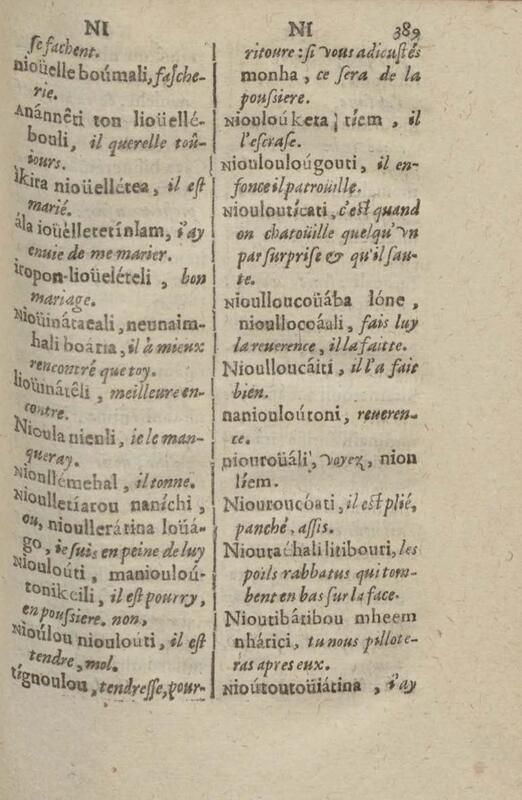 NI
se fachent.
nioüelle boúmali, fasche-
rie.
Anánnêti ton lioüellé-
bouli, il querelle toû-
iours.
ikira nioüellétea, il est
marié.
ála ioüelletetínlam, i'ay
enuie de me marier.
itopon-lioüelételi, bon
mariage.
Nioüinátaeali, neunaim-
hali boátia, il à mieux
rencontré que toy.
lioüinátêli, meilleure en-
contre.
Nioula nienli, ie le man-
queray.
Nionllémehal, il tonne.
Nioulletíarou naníchi,
ou, nioullerátina loüá-
go, ie suis en peine de luy
Nioulouti, manioulou-
tonikeili, il est pourry,
en poussiere. non,
Nioúlou nioulouti, il est
tendre, mol.
tignoulou, tendresse, pour-
NI 389
ritoure: si vous adioustés
monha, ce sera de la
poussiere.
Nioulouketa tíem, il
l'escrase.
Nioulouloúgouti, il en-
fonce il patroüille.
Nioulouticati, c'est quand
on chatoüille quelqu'vn
par surprise & qu'il sau-
te.
Nioulloucoüába lóne,
nioullocoáali, fais luy
la reuerence, il la faitte.
Nioulloucáiti, il l'a fait
bien.
nanouloútoni, reueren-
ce.
niouroüáli, voyez, nion
líem.
Niouroucóati, il est plié,
panché, assis.
Nioutachali litibouti, les
poils rabbatus qui tom-
bent en bas sur la face.
Nioutibátibou mheem
nhátici, tu nous pillote-
ras apres eux.
Nioútoutoüiátina, i'ay